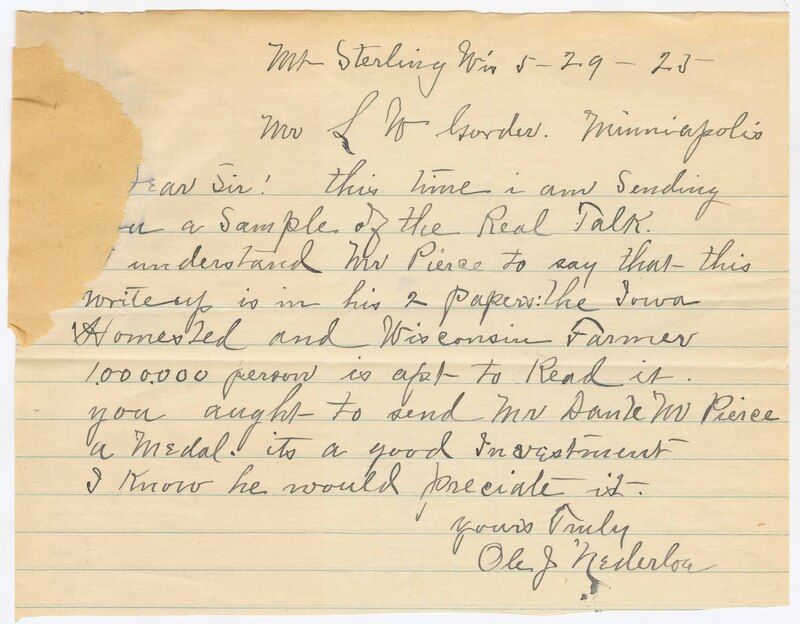 Mt Sterling Wis 5-29-25
Mr L W Gorder. Minniapolis
ear Sir! this time i am Sending
u a Sample of the Real Talk.
understand Mr Pierce to say that this
write up is in his 2 papers: the Iowa
Homested and Wisconsin Farmer
1.000.000 person is apt to Read it.
you aught to send Mr Dante M Pierce
a Medal. its a good Investment
I Know he would preciate it.
yours Truly
Ole J Nederloe